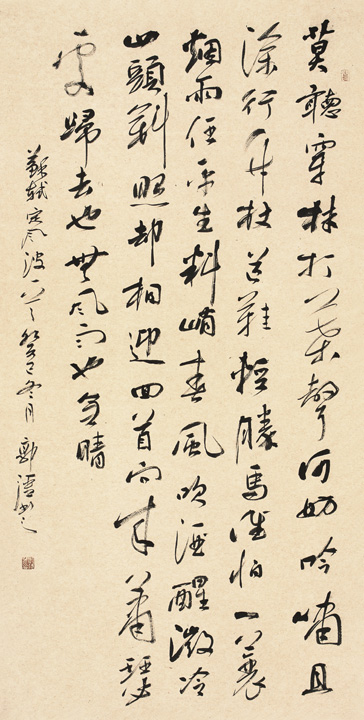 莫聽穿林打葉聲何妨吟嘯且
徐行竹杖芒鞋輕勝馬誰怕一蓑
烟雨任平生料峭春風吹酒醒微冷
山頭斜照却相迎回首向来蕭瑟
處歸去也無風雨也無晴
蘇軾定風波 癸巳冬月